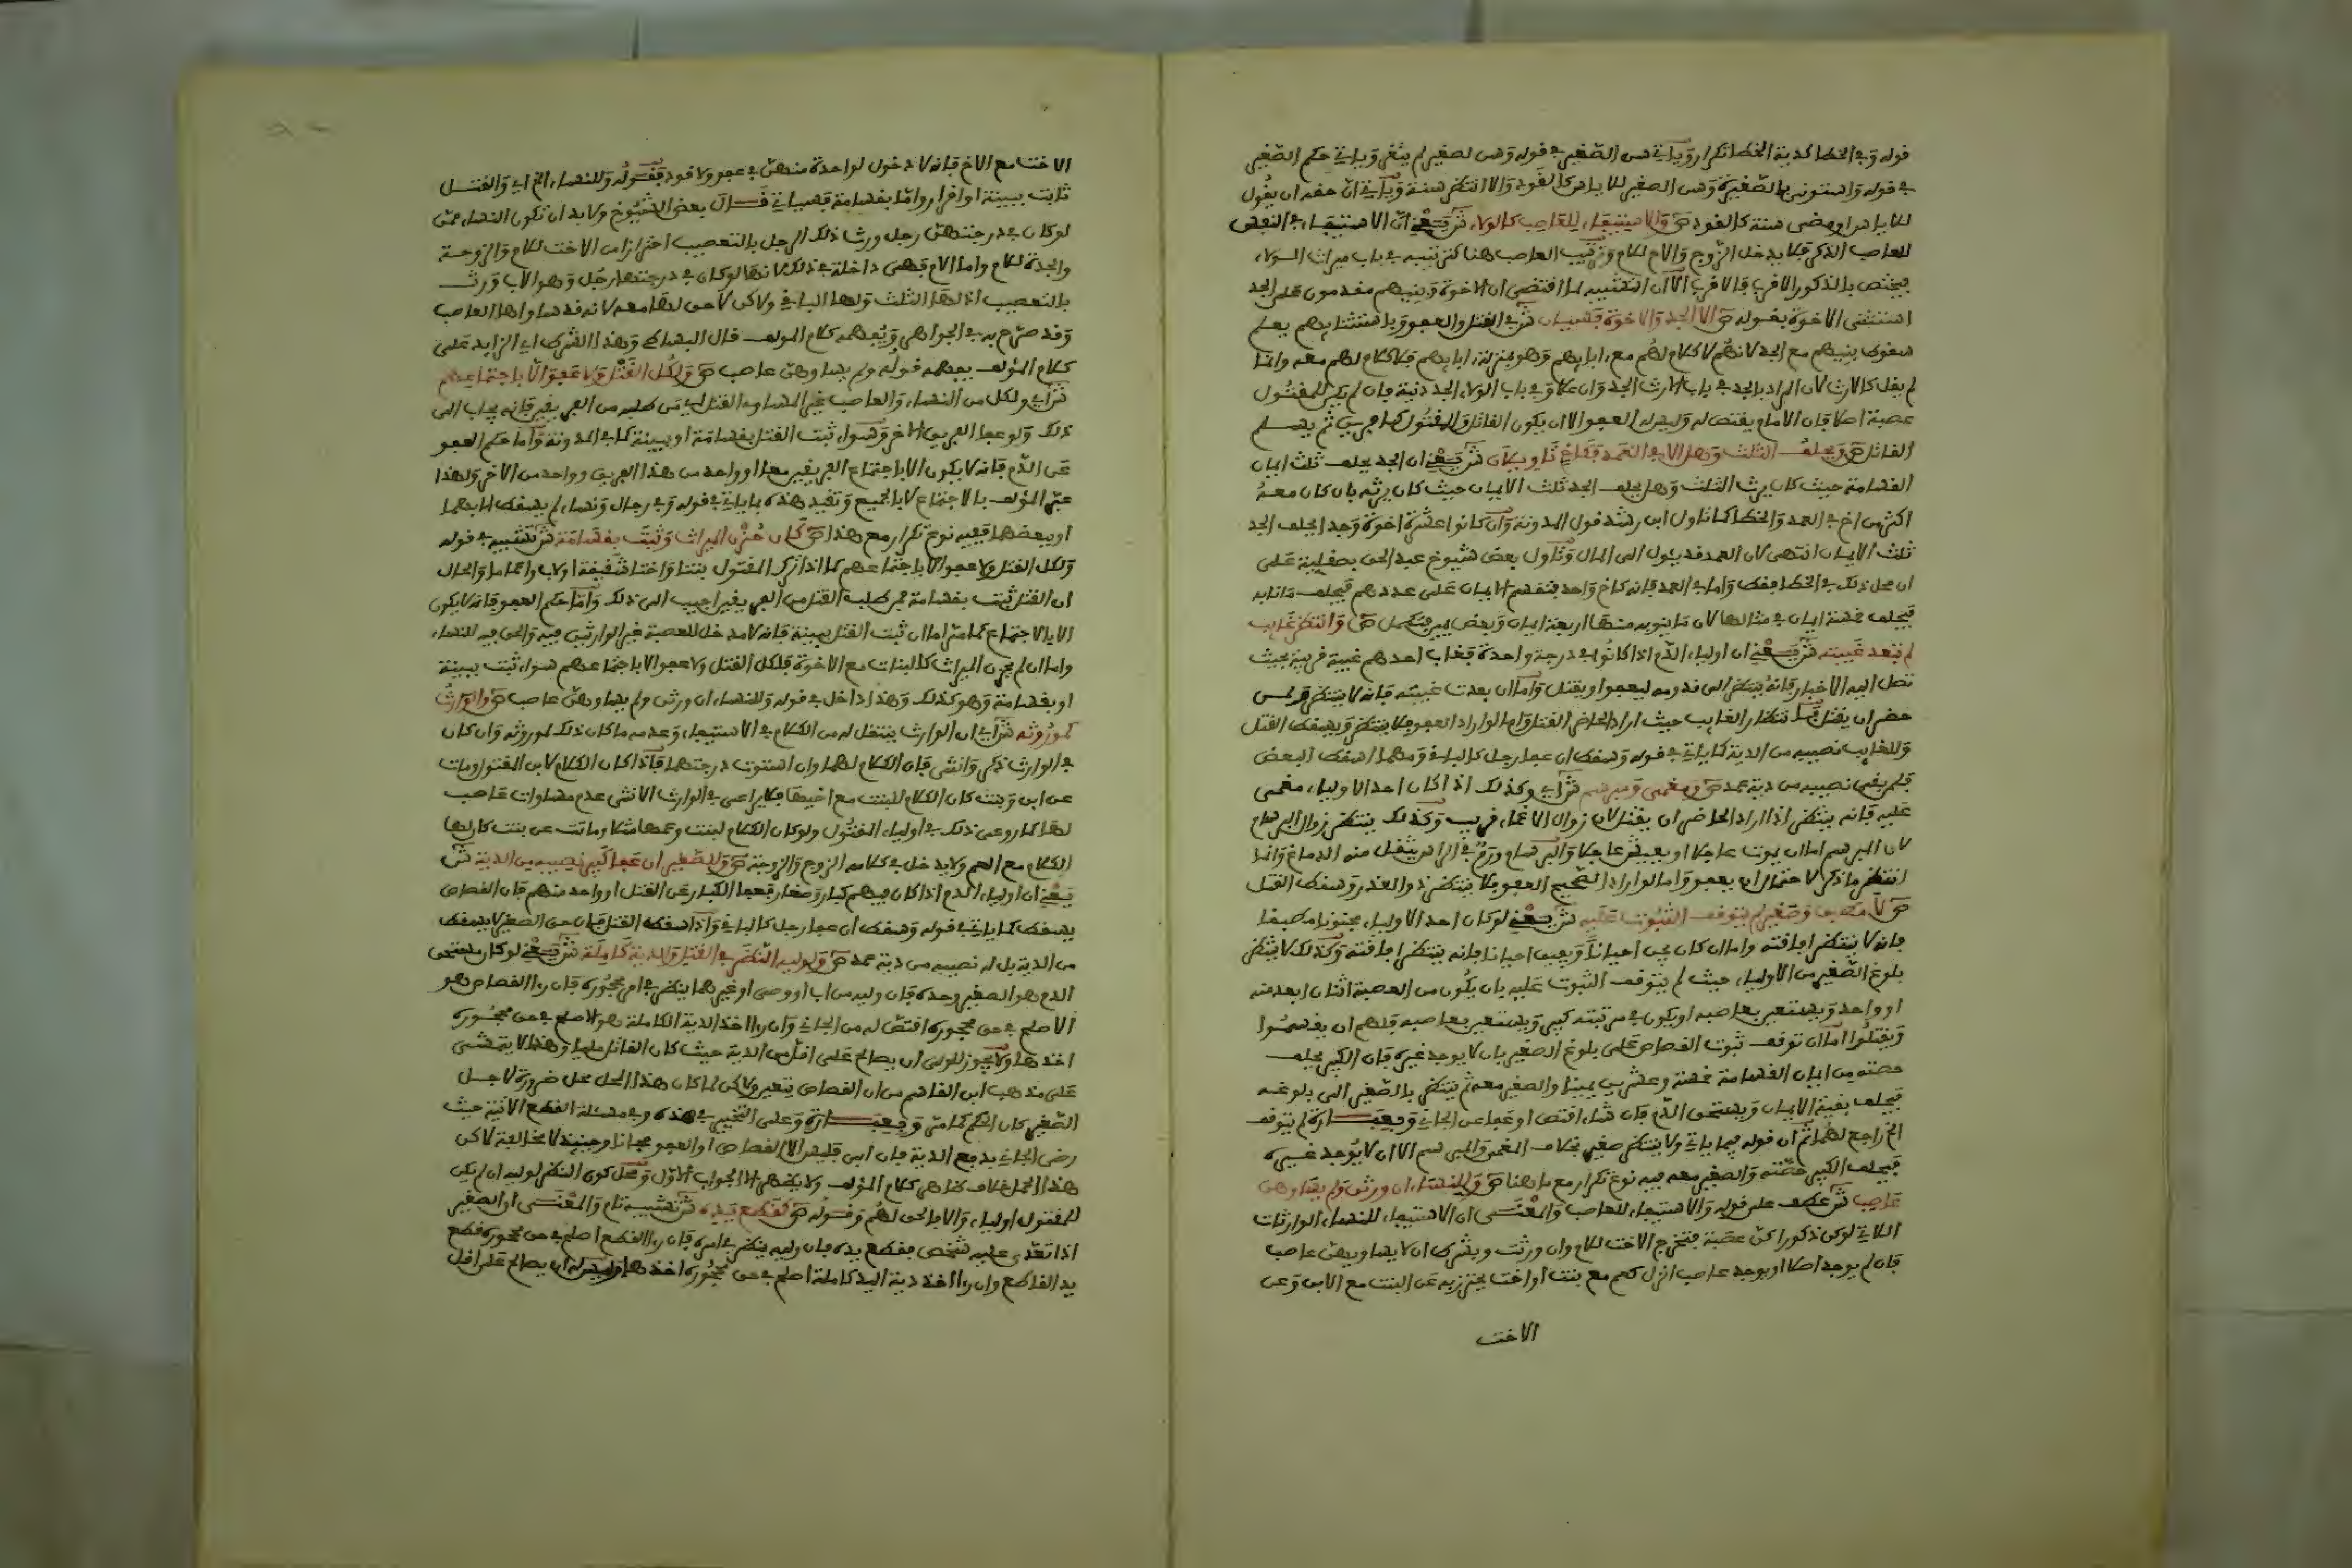 قوله وفي الخطا كدية الخطا تكرار ويأتي هنا الصغير في قوله وهنا لصغير لم يثغر ويأتي حكم الصغير
في قوله واستونى بالصغيرة وهنا الصغير للاياس كالقود والا انتظر سنة ويأتي ان حقه ان يقول
للاياس او مضي سنة كالقود ص والاستيفاء للعاصب كالولاء ش يعني ان الاستيفاء في النفس
للعاصب الذكر فلا يدخل الزوج والاخ للام وترتيب العاصب هنا كترتيبه في باب ميراث الولاء
فيختص بالذكور الاقرب فالاقرب الا ان التشبيه لما اقتضى ان الاخوة وبنيهم مقدمون على الجد
استثنى الاخوة بقوله ص الا الجد والاخوة فسيان ش في القتل والعفو وباستثنايهم يعلم
سقوط بنيهم مع الجد لانهم لا كلام لهم مع ءابايهم وهو بمنزلة ءابايهم فلا كلام لهم معه وانما
لم يقل كالارث لان المراد بالجد في باب الارث الجد وان علا وفي باب الولاء الجد دنية فان لم يكن للمقتول
عصبة اصلا فان الامام يقتص له وليس له العفو الا ان يكون القاتل والمقتول كافرين ثم يسلم
القاتل ص ويحلف الثلث وهل الا في العمد فكاخ تاويلان ش يعني ان الجد يحلف ثلث ايمان
القسامة حيث كان يرث الثلث وهل يحلف الجد ثلث الايمان حيث كان يرثه بان كان معه
اكثر من اخ في العمد والخطا كما تاول ابن رشد قول المدونة وان كانوا عشرة اخوة وجد احلف الجد
ثلث الايمان انتهى لان العمد قد يئول الى المال وتاول بعض شيوخ عبد الحق بصقلية على
ان محل ذلك في الخطا فقط واما في العمد فانه كاخ واحد فتقسم الايمان على عددهم فيحلف ما نابه
فيحلف خمسة ايمان في مثالها لان ما ينوبه منها اربعة ايمان وبعض يمين فتكمل ص وانتظر غايب
لم تبعد غيبته ش يعني ان اولياء الدم اذا كانوا في درجة واحدة فغاب احدهم غيبة قريبة بحيث
تصل اليه الاخبار فانه ينتظر الى قدومه ليعفو او يقتل واما ان بعدت غيبته فانه لا ينتظر فلمن
حضر ان يقتل انتظار الغايب حيث اراد الحاضر القتل واما لو اراد العفو فلا ينتظر ويسقط القتل
وللغايب نصيبه من الدية كما ياتي في قوله وسقط ان عفا رجل كالباقي ومهما اسقط البعض
فلمن بقي نصيبه من دية عمد ص ومغمى ومبرسم ش اي وكذلك اذا كان احد الاولياء مغمى
عليه فانه ينتظر اذا اراد الحاضر ان يقتل لان زوال الاغماء قريب وكذلك ينتظر زوال البرسام
لان المبرسم اما ان يموت عاجلا او يعيش عاجلا والبرسام ورم في الراس يثقل منه الدماغ وانما
انتظر ما ذكر لاحتمال ان يعفو واما لو اراد الصحيح العفو فلا ينتظر ذو العذر وسقط القتل
ص لا مطبق وصغير لم يتوقف الثبوت عليه ش يعني لو كان احد الاولياء مجنونا مطبقا
فانه لا ينتظر افاقته واما ان كان يجن احيانا ويفيق احيانا فانه ينتظر افاقته وكذلك لا ينتظر
بلوغ الصغير من الاولياء حيث لم يتوقف الثبوت عليه بان يكون من العصبة اثنان ابعد منه
او واحد ويستعين بعاصبه او يكون في مرتبته كبير ويستعين بعاصبه فلهم ان يقسموا
ويقتلوا اما ان توقف ثبوت القصاص على بلوغ الصغير بان لا يوجد غيره فان الكبير يحلف
حصته من ايمان القسامة خمسة وعشرين يمينا والصغير معه ثم ينتظر بالصغير الى بلوغه
فيحلف بقية الايمان ويستحق الدم فان شاء اقتص او عفا عن الجاني وعبارة لم يتوقف
الخ راجع لهما ثم ان قوله فيما ياتي ولا ينتظر صغير بخلاف المغمى والمبرسم الا ان لا يوجد غيره
فيحلف الكبير حصته والصغير معه فيه نوع تكرار مع ما هنا ص وللنساء ان ورثن ولم يساوهن
عاصب ش عطف على قوله والاستيفاء للعاصب والمعنى ان الاستيفاء للنساء الوارثات
اللاتي لو كن ذكورا كن عصبة فتخرج الاخت للام وان ورثت وبشرط ان لا يساويهن عاصب
فان لم يوجد اصلا او يوجد عاصب انزل كعم مع بنت او اخت يحترز به عن البنت مع الابن وعن
الاخت
الاخت مع الاخ فانه لا دخول لواحدة منهن في عفو ولا قود فقوله وللنساء الخ اي والقتل
ثابت ببينة او اقرار واما بقسامة فسياتي قال بعض الشيوخ ولا بد ان تكون النساء ممن
لو كان في درجتهن رجل ورث ذلك الرجل بالتعصيب احترازا من الاخت للام والزوجة
والجدة للام واما الام فهي داخلة في ذلك لانها لو كان في درجتها رجل وهو الاب ورث
بالتعصيب اذ لها الثلث ولها الباقي ولاكن لا حق لها معه لانه قد ساواها العاصب
وقد صرح به في الجواهر ويفهمه كلام المولف قال البساطي وهذا الشرط اي الزايد على
كلام المولف يفهمه قوله ولم يساوهن عاصب ص ولكل القتل ولا عفو الا باجتماعهم
ش اي ولكل من النساء والعاصب غير المساوي القتل اي من طلبه من الفريقين فانه يجاب الى
ذلك ولو عفا الفريق الاخر وسواء ثبت القتل بقسامة او ببينة كما في المدونة واما حكم العفو
عن الدم فانه لا يكون الا باجتماع الفريقين معا او واحد من هذا الفريق وواحد من الاخر ولهذا
عبر المولف بالاجتماع لا بالجميع وتقيد هذه بما ياتي في قوله وفي رجال ونساء لم يسقط الا بهما
او ببعضهما ففيه نوع تكرار مع هذا ص كان حزن الميراث وثبت بقسامة ش تشبيه في قوله
ولكل القتل ولا عفو الا باجتماعهم كما اذا ترك المقتول بنتا واختا شقيقة او لاب واعماما والحال
ان القتل ثبت بقسامة فمن طلب القتل من الفريقين اجيب الى ذلك واما حكم العفو فانه لا يكون
الا بالاجتماع كما مر اما ان ثبت القتل ببينة فانه لا مدخل للعصبة غير الوارثين فيه والحق فيه للنساء
واما ان لم يحزن الميراث كالبنات مع الاخوة فلكل القتل ولا عفو الا باجتماعهم سواء ثبت ببينة
او بقسامة وهو كذلك وهذا داخل في قوله وللنساء ان ورثن ولم يساوهن عاصب ص والوارث
كموروثه ش اي ان الوارث ينتقل له من الكلام في الاستيفاء وعدمه ما كان ذلك لموروثه وان كان
في الوارث ذكر وانثى فان الكلام لهما وان استوت درجتهما فاذا كان الكلام لابن المقتول ومات
عن ابن وبنت كان الكلام للبنت مع اخيها فلا يراعى في الوارث الانثى عدم مساوات عاصب
لها كما روعي ذلك في اولياء المقتول ولو كان الكلام لبنت وعمها مثلا وماتت عن بنت كان لها
الكلام مع العم ولا يدخل في كلامه الزوج والزوجة ص وللصغير ان عفا كبير نصيبه من الدية ش
يعني ان اولياء الدم اذا كان فيهم كبار وصغار فعفا الكبار عن القتل او واحد منهم فان القصاص
يسقط كما ياتي في قوله وسقط ان عفا رجل كالباقي واذا سقط القتل فان حق الصغير لا يسقط
من الدية بل له نصيبه من دية عمد ص ولوليه النظر في القتل والدية كاملة ش يعني لو كان مستحق
الدم هو الصغير وحده فان وليه من اب او وصي او غيرهما ينظر في امر محجوره فان رءا القصاص هو
الاصلح في حق محجوره اقتص له من الجاني وان رءا اخذ الدية الكاملة هو الاصلح في حق محجوره
اخذها ولا يجوز للولي ان يصالح على اقل من الدية حيث كان القاتل مليا وهذا لا يتمشى
على مذهب ابن القاسم من ان القصاص يتعين ولاكن لما كان هذا المحل محل ضرورة لاجل
الصغير كان الحكم كما مر وعبارة وعلى التخيير في هذه وفي مسئلة القطع الاتية حيث
رضي الجاني بدفع الدية فان ابى فليس الا القصاص او العفو مجانا وحينئذ لا مخالفة لاكن
هذا الحمل خلاف ظاهر كلام المولف ولا يظهر الا الجواب الاول ومحل كون النظر لوليه ان لم يكن
للمقتول اولياء والا فالحق لهم وقوله ص كقطع يده ش تشبيه تام والمعنى ان الصغير
اذا تعدى عليه شخص فقطع يده فان وليه ينظر في امره فان رءا القطع اصلح في حق محجوره قطع
يد القاطع وان رءا اخذ دية اليد كاملة اصلح في حق محجوره اخذها وليس له ان يصالح على اقل